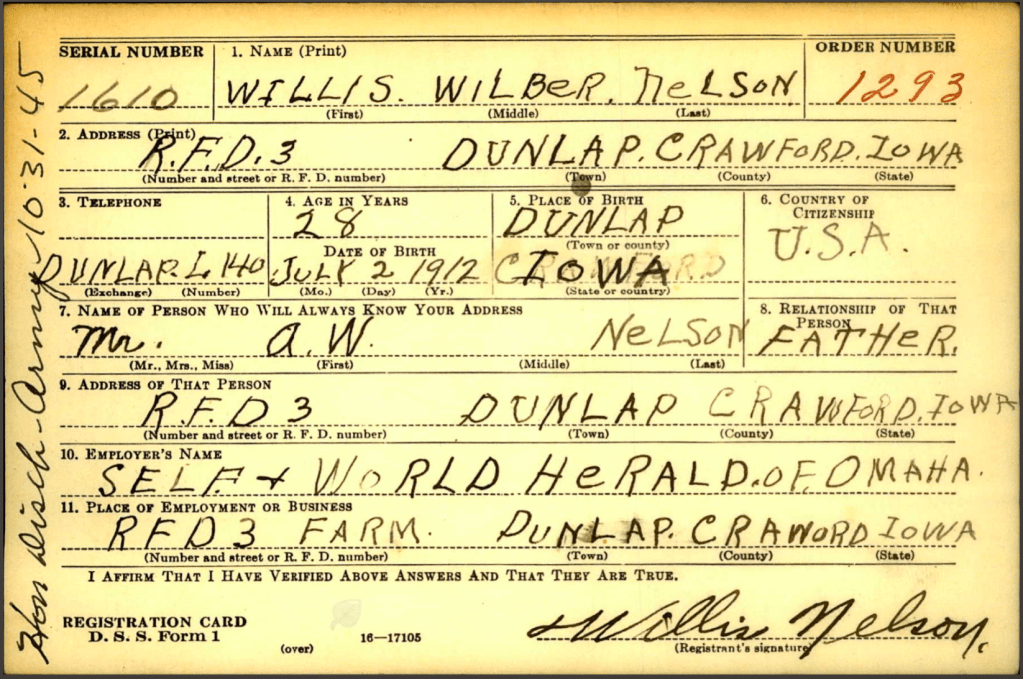 SERIAL NUMBER 1. NAME (Print) ORDER NUMBER
1610 WILLIS. WILBER. NELSON 1293
(First) (Middle) (Last)
2. ADDRESS (Print)
R.F.D. 3 DUNLAP. CRAWFORD. IOWA
(Number and street or R. F. D. number) (Town) (County) (State)
3. TELEPHONE 4. AGE IN YEARS 5. PLACE OF BIRTH 6. COUNTRY OF CITIZENSHIP
28 DUNLAP U.S.A.
DATE OF BIRTH (Town or county)
DUNLAP. L 140 JULY 2 1912 CRAWFORD IOWA
(Exchange) (Number) (Mo.) (Day) (Yr.) (State or country)
7. NAME OF PERSON WHO WILL ALWAYS KNOW YOUR ADDRESS 8. RELATIONSHIP OF THAT PERSON
Mr. A.W. NELSON FATHER.
(Mr., Mrs., Miss) (First) (Middle) (Last)
9. ADDRESS OF THAT PERSON
R.F.D 3 DUNLAP CRAWFORD. IOWA
(Number and street or R. F. D. number) (Town) (County) (State)
10. EMPLOYER'S NAME
SELF. + WORLD HERALD. OF. OMAHA.
11. PLACE OF EMPLOYMENT OR BUSINESS
RFD 3 FARM. DUNLAP. CRAWORD IOWA
(Number and street or R. F. D. number) (Town) (County) (State)
I AFFIRM THAT I HAVE VERIFIED ABOVE ANSWERS AND THAT THEY ARE TRUE.
REGISTRATION CARD
D. S. S. Form 1 16—17105 Willis Nelson.
(over) (Registrant's signature)
Hon Disch-Army-10-31-45